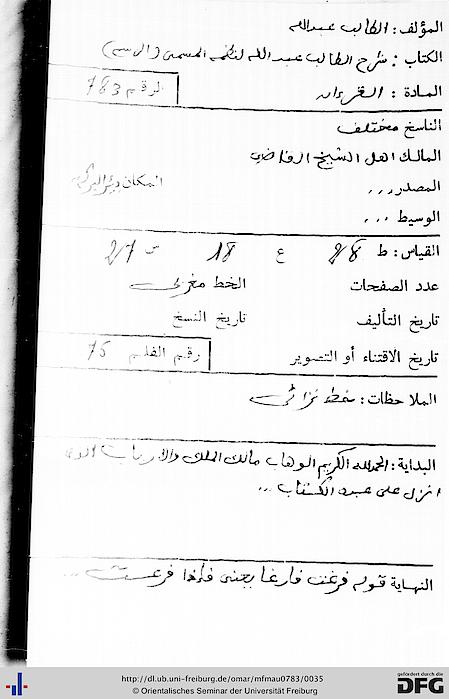 المؤلف: الطالب عبدالله
الكتاب: شرح الطالب عبد الله لنظمه المسمى (الرسم)
المادة: القرءان
الرقم 783
الناسخ مختلف
المالك اهل الشيخ القاضي
المصدر...
المكان
الوسيط ...
القياس: ط 28 ع 18 س 27
عدد الصفحات
الخط مغربي
تاريخ التأليف
تاريخ النسخ
تاريخ الاقتناء أو التصوير
رقم الفلم 75
الملاحظات: مخطط
البداية: الحمدلله الكريم الوهاب مالك الملك والارباب الذي
انزل على عبده الكتاب ...
النهاية قوله فرغت فارغا يعنى فإذا فرغت ...
http://dl.ub.uni-freiburg.de/omar/mfmau0783/0035
© Orientalisches Seminar der Universität Freiburg
gefördert durch die
DFG